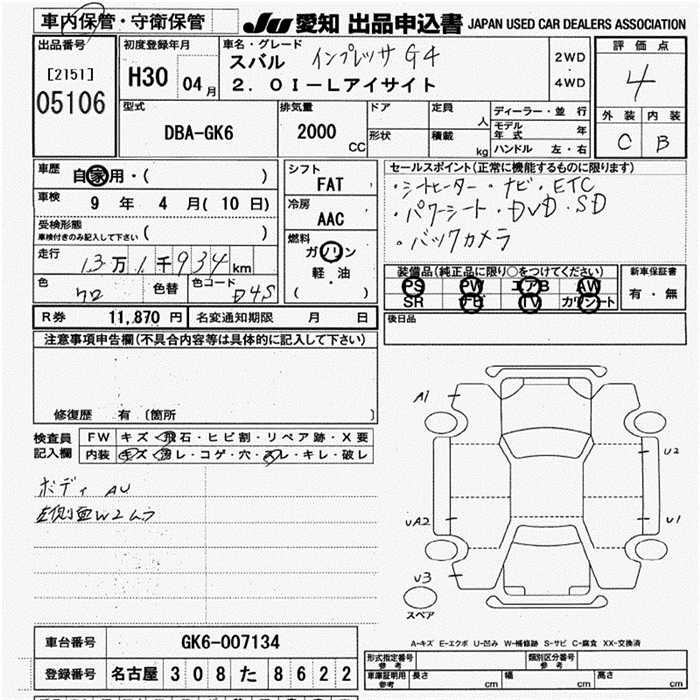 車内保管・守衛保管
JU 愛知 出品申込書 JAPAN USED CAR DEALERS ASSOCIATION
出品番号
[2151]
05106
初度登録年月
H30 04月
車名・グレード
スバル インプレッサ G4
2.0I-Lアイサイト
2WD
・
4WD
評価点
4
外装 内装
C B
型式
DBA-GK6
排気量
2000
CC
ドア
形状
定員
人
積載
kg
ディーラー・並行
モデル年式 年
ハンドル 左・右
車歴
自家用・( )
車検
9年 4月(10日)
受検形態
車検付きのみ記入して下さい ( )
走行
13万1千934km
色
クロ
色替
色コード
D4S
シフト
FAT
冷房
AAC
燃料
ガソリン
軽・油
( )
セールスポイント(正常に機能するものに限ります)
・シートヒーター・ナビ・ETC
・パワーシート・DVD・SD
・バックカメラ
装備品(純正品に限り○をつけてください)
PS PW エアB AW
SR ナビ TV カワシート
新車保証書
有・無
後日品
R券 11,870円 名変通知期限 月 日
注意事項申告欄(不具合内容等は具体的に記入して下さい)
修復歴 有〔箇所 〕
検査員記入欄
FW キズ・飛石・ヒビ割・リペア跡・X要
内装 キズ・汚レ・コゲ・穴・スレ・キレ・破レ
ボディ AU
左側面W2ムラ
A1
U2
UA2
U1
U3
スペア
A-キズ E-エクボ U-凹み W-補修跡 S-サビ C-腐食 XX-交換済
車台番号 GK6-007134
登録番号 名古屋 308 た 8622
形式指定番号
参考
類別区分番号
参考
車庫証明用
参考
長さ cm 幅 cm 高さ cm